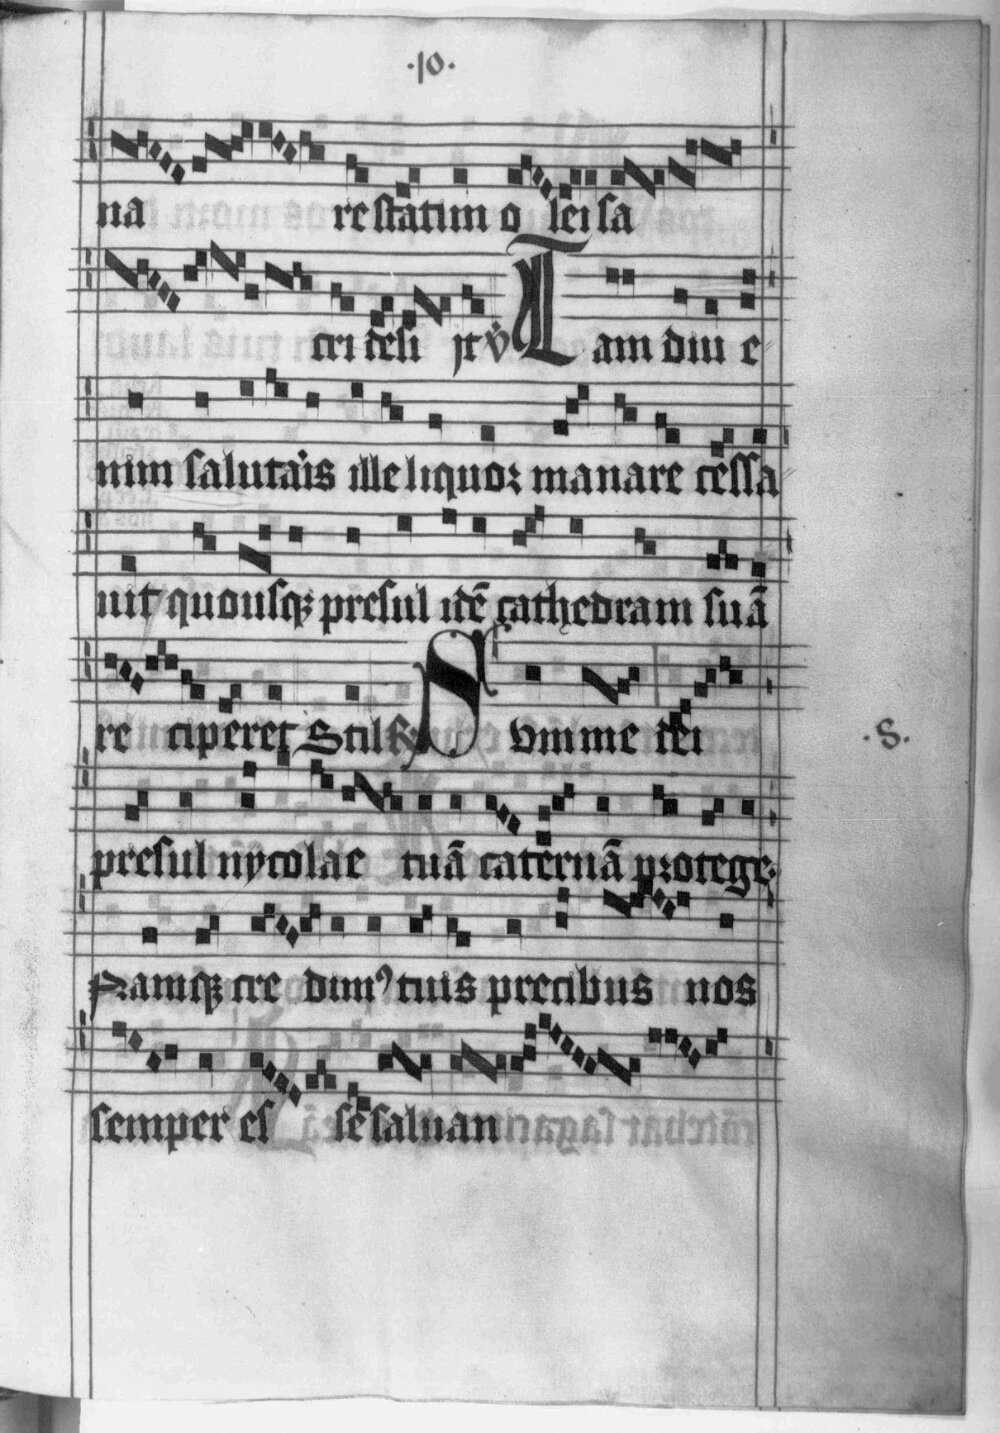 ·10·
na restatim o lei sa
cri desi jt v̇ Tam diu e
nim salutaris ille liquor manare cessa
uit quousqꝫ presul idē cathedram suā
re ciperet Stil Summe dei
·S·
presul nycolae tuā caternā protege
Namqꝫ cre dimꝰ tuis precibus nos
semper es se saluan